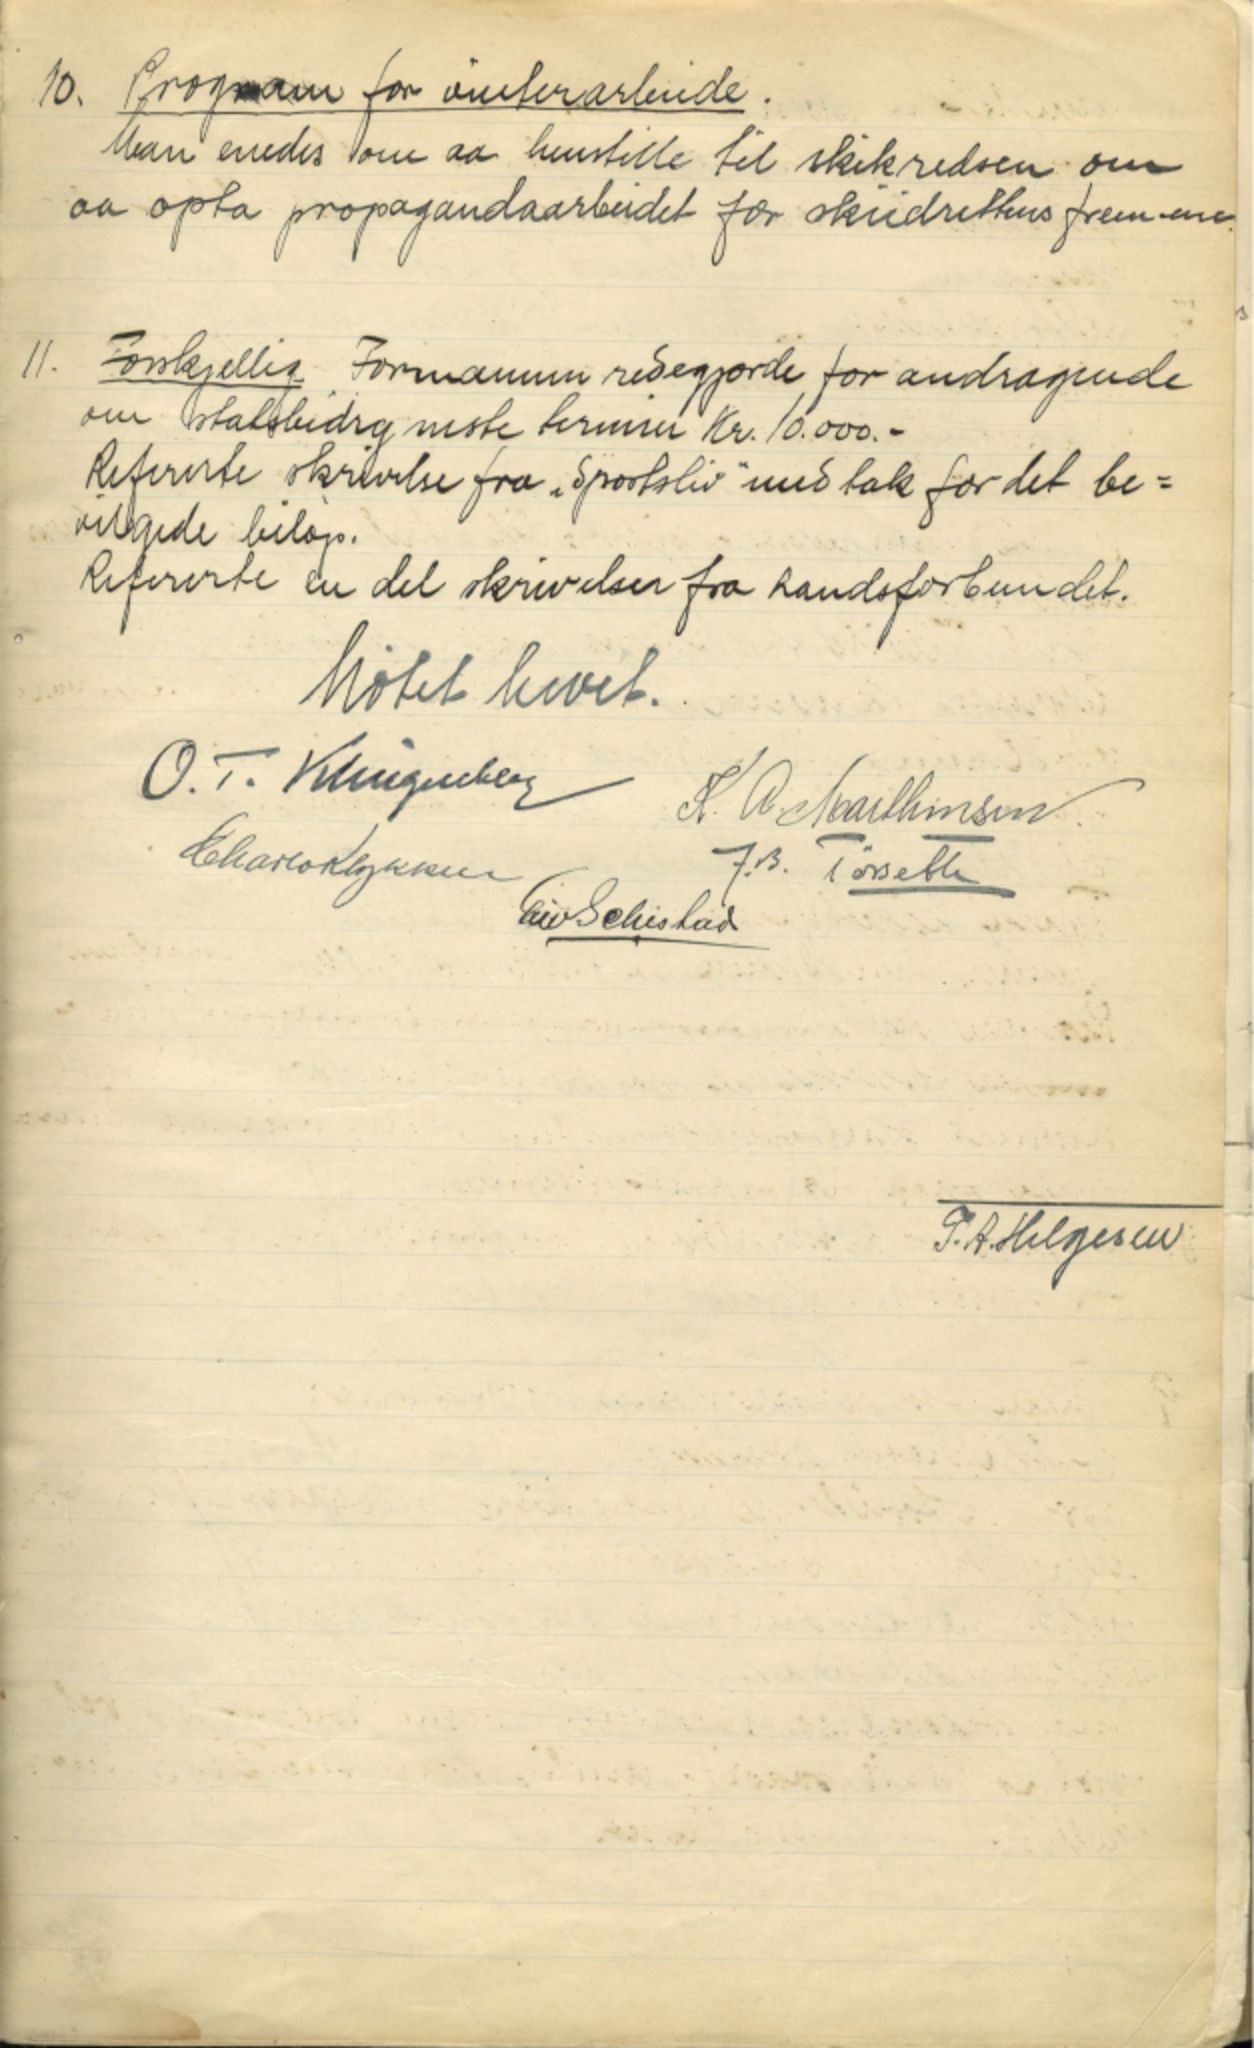 10. Program for vinterarbeide.
Man enedes om aa henstille til skikredsen om
aa opta propagandaarbeidet for skiidrettens fremme.
11. Forskjellig Formannen redegjorde for andragende
om statsbidrg neste termin Kr. 10.000.-
Refererte skrivelse fra „Sportsliv" med tak for det be=
vilgede beløp.
Refererte en del skrivelser fra Landsforbundet.
Møtet hevet.
O. T. Klingenberg
K. A. Marthinsen
Charles Kykken
F.B. Tørseth
Schistad
T. A. Helgesen